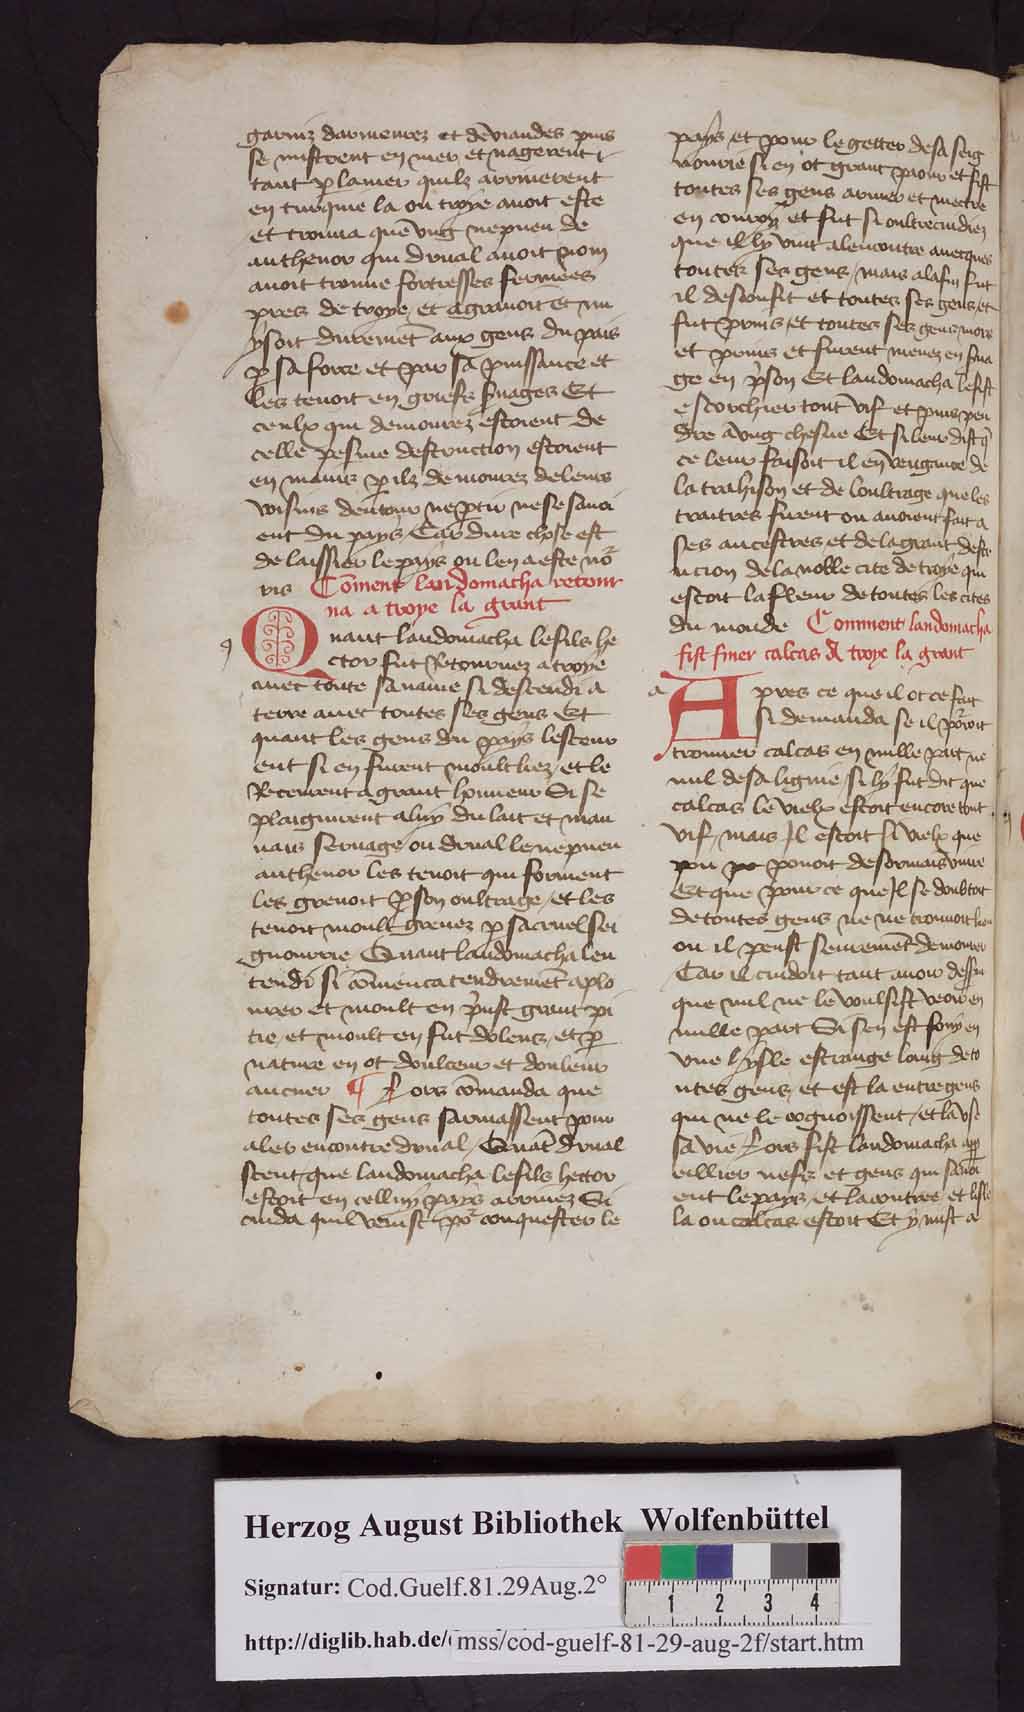 garniz darmeurez et de viandes puis
se mistrent en mer et nagerent
tant p la mer quilz arriuerent
en turquie la ou troye auoit este
et trouua que vng nepueu de
anthenor qui drual auoit nom
auoit trouue fortresses fermees
pres de troye et agrauoit et
duremēt aux gens du pais
p sa force et par sa puissance et
les tenoit en griefz seruages Et
ceulx qui demourez estoient de
celle pesme destruction estoient
en mains p ilz demourez de leurs
voisins dentour ne ptir ne se sauoi
ent du pays Car dure chose est
de laissier le pays ou len a este nor
ris Cōment landomacha retour
na a troye la grant
Quant landomacha le fils he
ctor fut Retournez a troye
auec toute sa nauie si descendi a
terre auec toutes ses gens Et
quant les gens du pays lesceur
ent si en furent moult liez et le
Receurent a grant honneur Si se
plaignirent a luy du lait et mau
uais seruage ou druall le nepueu
anthenor les tenoit qui forment
les greuoit p son oultrage et les
tenoit moult greuez p sa cruel sei
gnourie Quant landomacha len
tendi si cōmenca tendremēt a plo
urer et moult en prinst grant pi
tie et moult en fut dolent et p
nature en ot doulceur et douleur
au cuer ¶ Lors cōmanda que
toutes ses gens sarmassent pour
aler encontre druual Quāt druual
sceut que landomacha le fils hector
estoit en celluy pays arriuez Si
cuida quil venist por conquester le
pays et pour le getter de sa seig
nourie si en ot grant paour et fist
toutes ses gens armer et mectre
en conroy et fut si oultrecuidiez
que il ly vint alencontre auecques
toutes ses gens mais a la fin fut
il desconfit et toutes ses gens et
fut prins et toutes ses gens mors
et prins et furent menez en
en prison Et landomacha le fist
escorchier tout vif et puis pen
dre a vng chesne Et si leur dist q
ce leur faisoit il en vengance de
la trahison et de loultrage que les
traitres furent ou auoient fait a
ses ancestres et de la grant destr
ucion de la noble cite de troye qui
estoit la fleur de toutes les cites
du monde Comment landomacha
fist finer calcas A troye la grant
Apres ce que il ot ce fait
si demanda se il porroit
trouuer calcas en nulle part ne
nul de sa lignie si ly fut dit que
calcas le vielx estoit encore tout
vif mais Il estoit si vielx que
pou po pouoit desormais viure
Et que pour ce que Il se doubtoit
de toutes gens ne ne trouuoit lieu
ou il peust seurement demourer
Car il cuidoit tant auoir
que nul ne le voulsist veoir en
nulle part Si sen est fouy en
vne lysle estrange loing de to
utes gens et est la entre gens
qui ne le cognoissent et la vse
sa vie Lors fist landomacha app
eillier nefz et gens qui sauoi
ent le pays et la contree et lisle
la ou calcas estoit Et y mist a
Herzog August Bibliothek Wolfenbüttel
Signatur: Cod.Guelf.81.29Aug.2°
http://diglib.hab.de/ mss/cod-guelf-81-29-aug-2f/start.htm
1 2 3 4